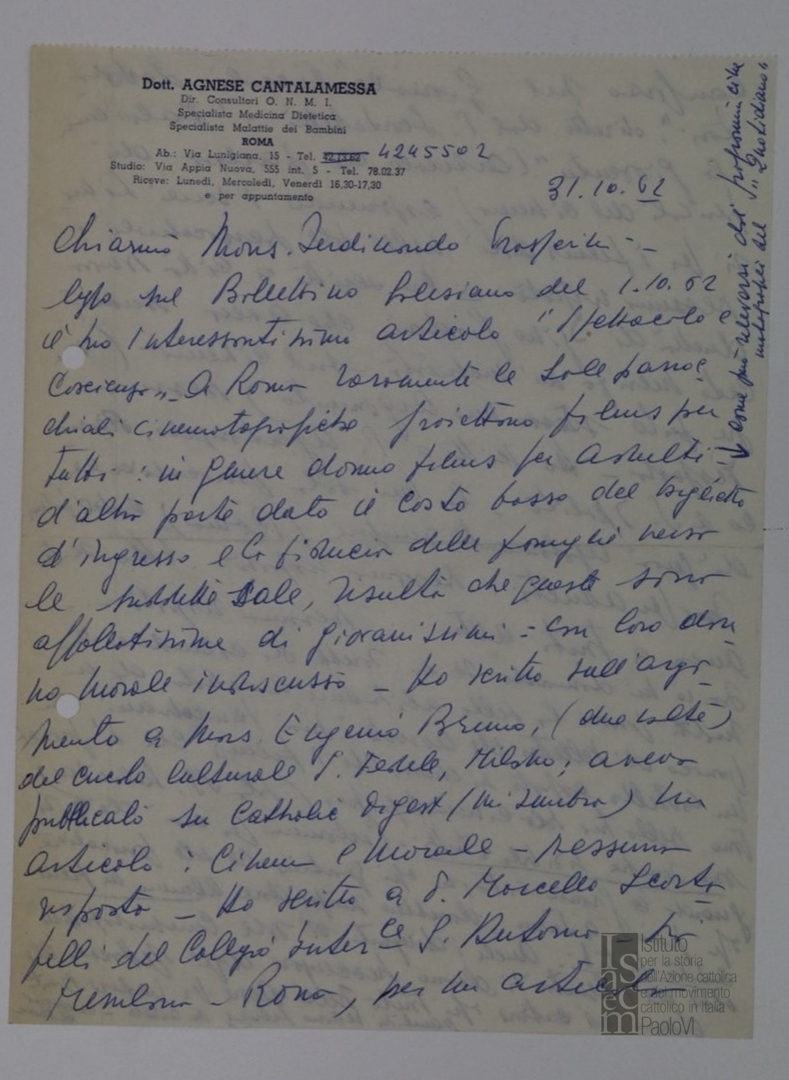 Dott. AGNESE CANTALAMESSA
Dir. Consultori O. N. M. I.
Specialista Medicina Dietetica
Specialista Malattie dei Bambini
ROMA
Ab.: Via Lunigiana, 15 - Tel. 4245502
Studio: Via Appia Nuova, 555 int. 5 - Tel. 78.02.37
Riceve: Lunedì, Mercoledì, Venerdì 16,30-17,30
e per appuntamento
31.10.62
Chiar.mo Mons. Ferdinando
leggo sul Bollettino Salesiano del 1.10.62
il suo interessantissimo articolo "Spettacolo e
Coscienza" - A Roma raramente le Sale parroc
chiali cinematografiche proiettono films per
tutti: in genere danno films per adulti
d'altra parte dato il costo basso del biglietto
d'ingresso e la fiducia delle famiglie verso
le suddette Sale, risulta che queste sono
affollatissime di giovanissimi = con loro dan-
no morale indiscusso - Ho scritto sull'argo-
mento a Mons. Eugenio Bruno, (due volte)
del circolo culturale S. Fedele, Milano; aveva
pubblicato su Catholic Digest (mi sembra) un
articolo: Cinema e Morale - nessuna
risposta - Ho scritto a P. Marcello
del Collegio Inter.ce S. Antonio
Merulana - Roma, per un articolo
come può rilevarsi dai programmi cine
matografici del "Quotidiano"
Istituto
per la storia
dell'Azione cattolica
e del movimento
cattolico in Italia
PaoloVI
isacem